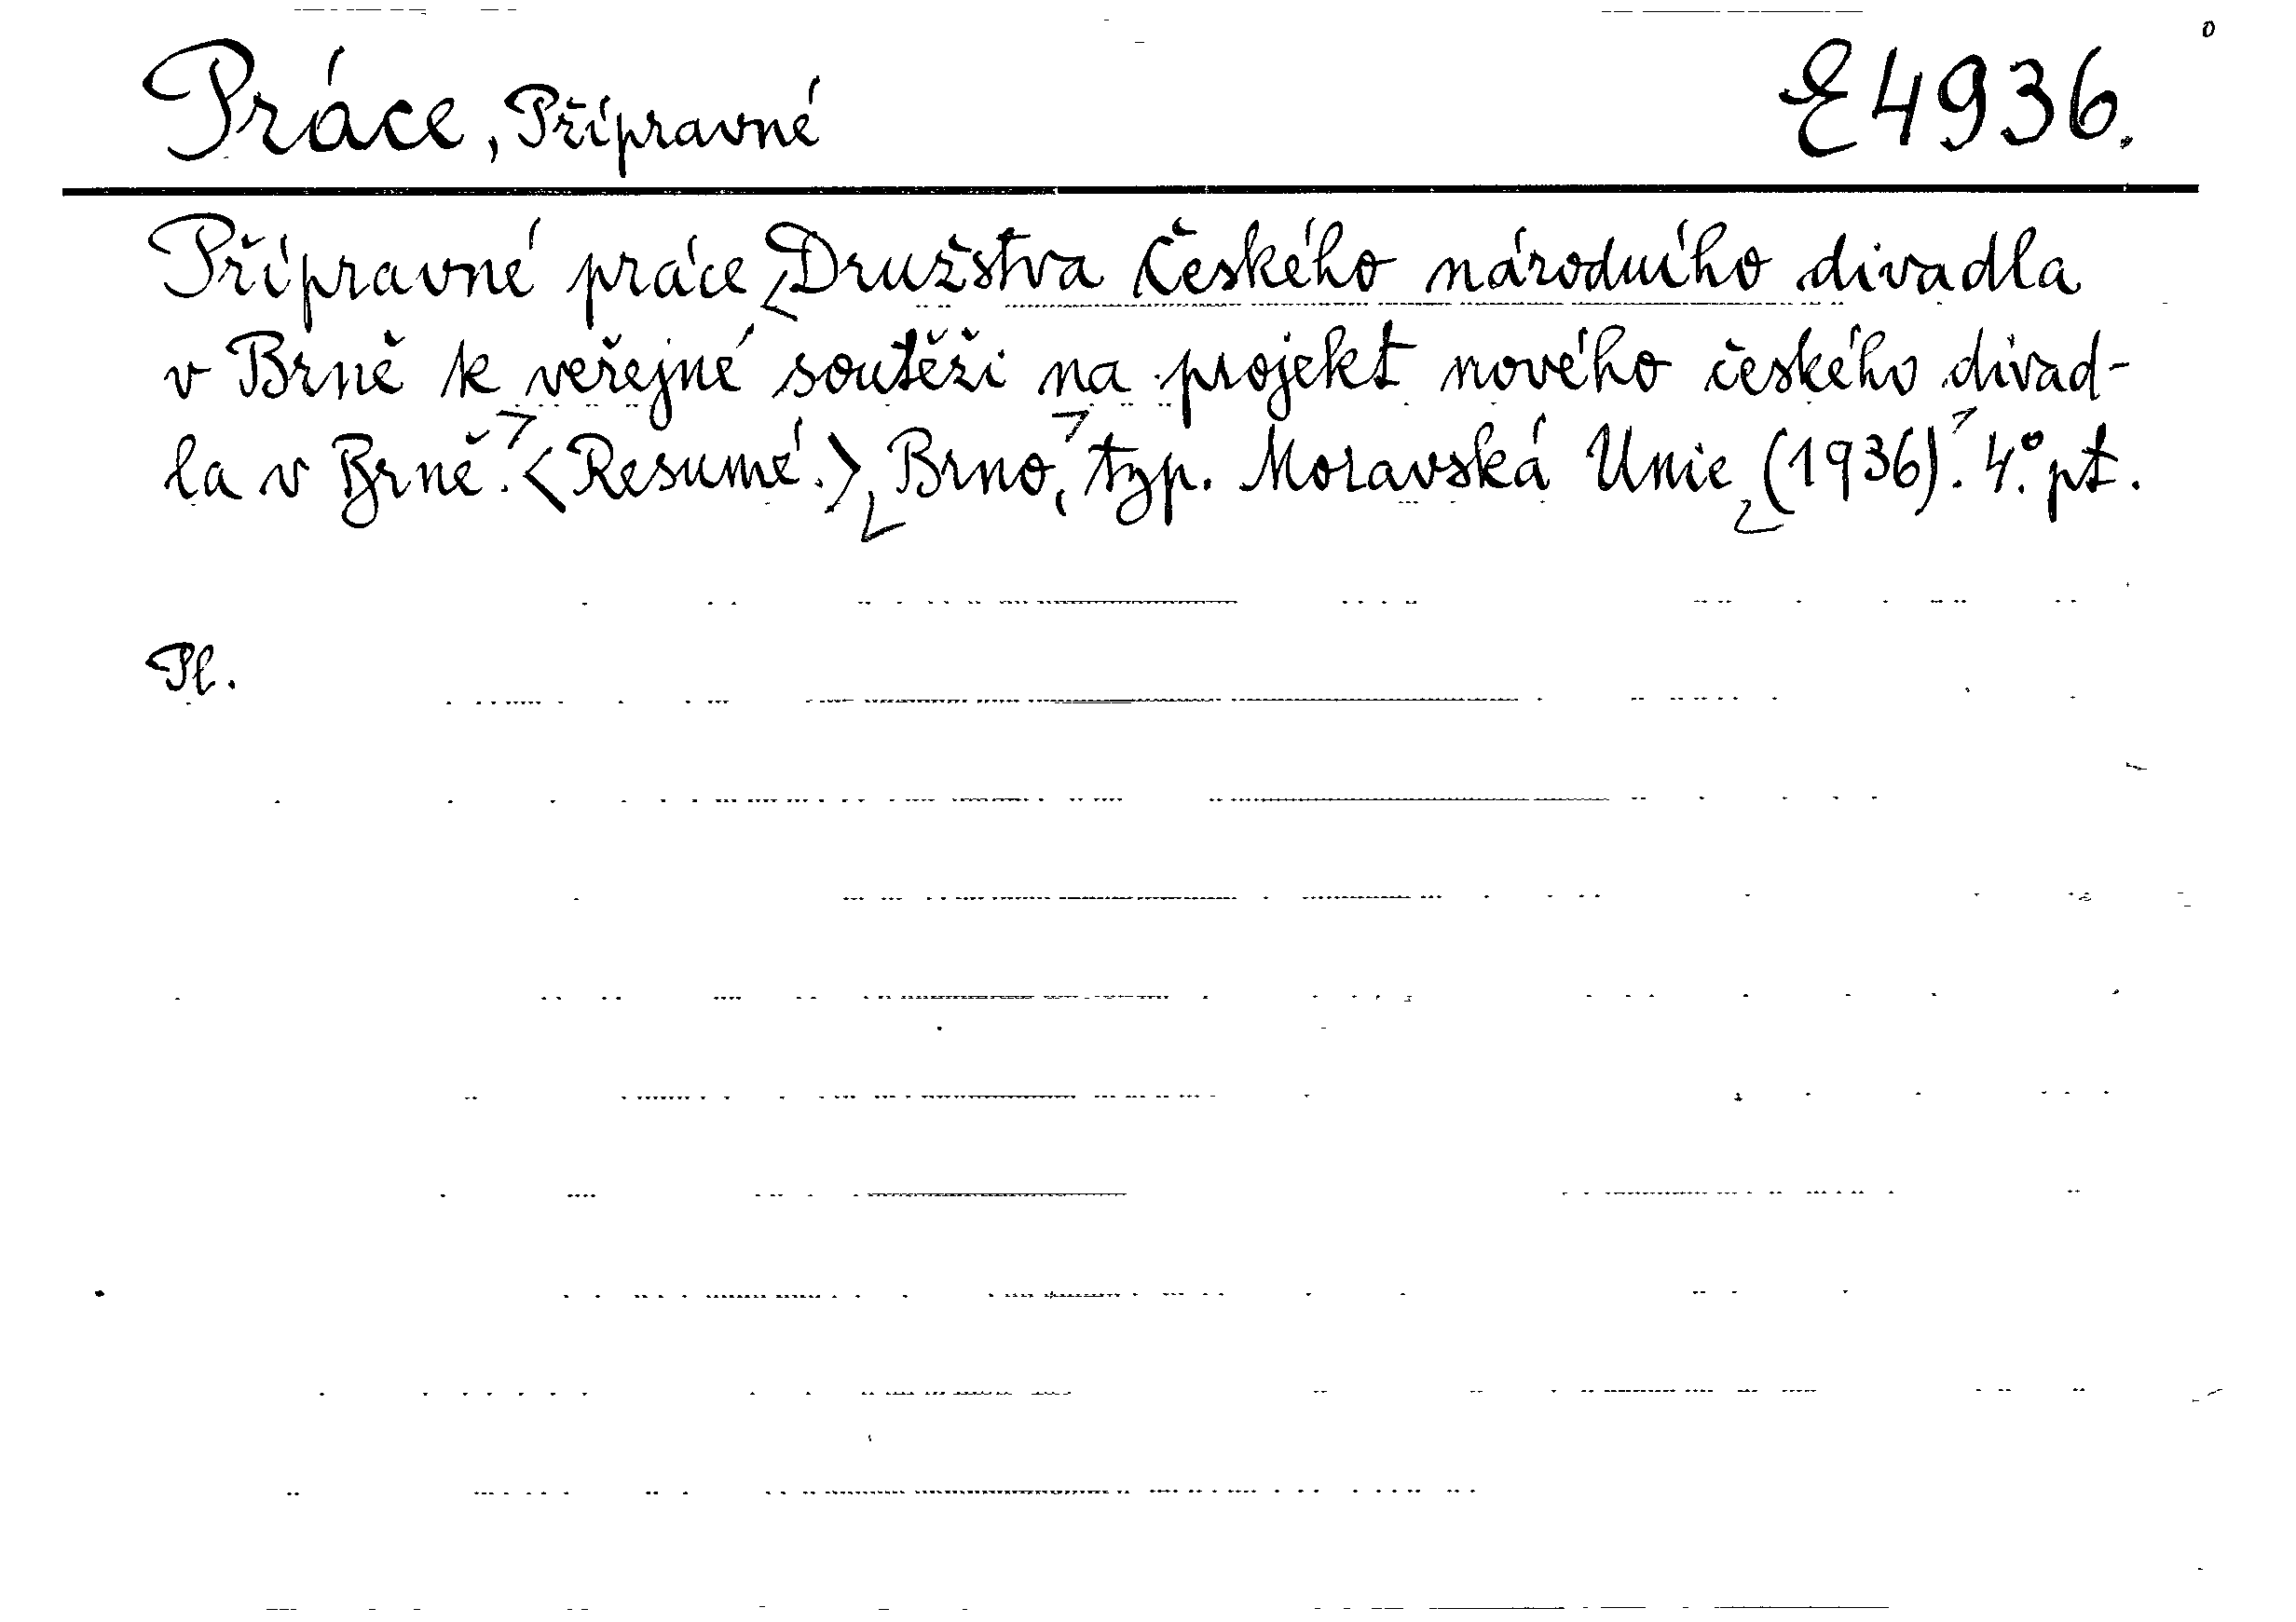 Práce, Přípravné E 4936.
Přípravné práce Družstva Českého národního divadla
v Brně k veřejné soutěži na projekt nového českého divad-
la v Brně. <Resumé.> Brno, typ. Moravská Unie (1936). 4.° pt.
Pl.